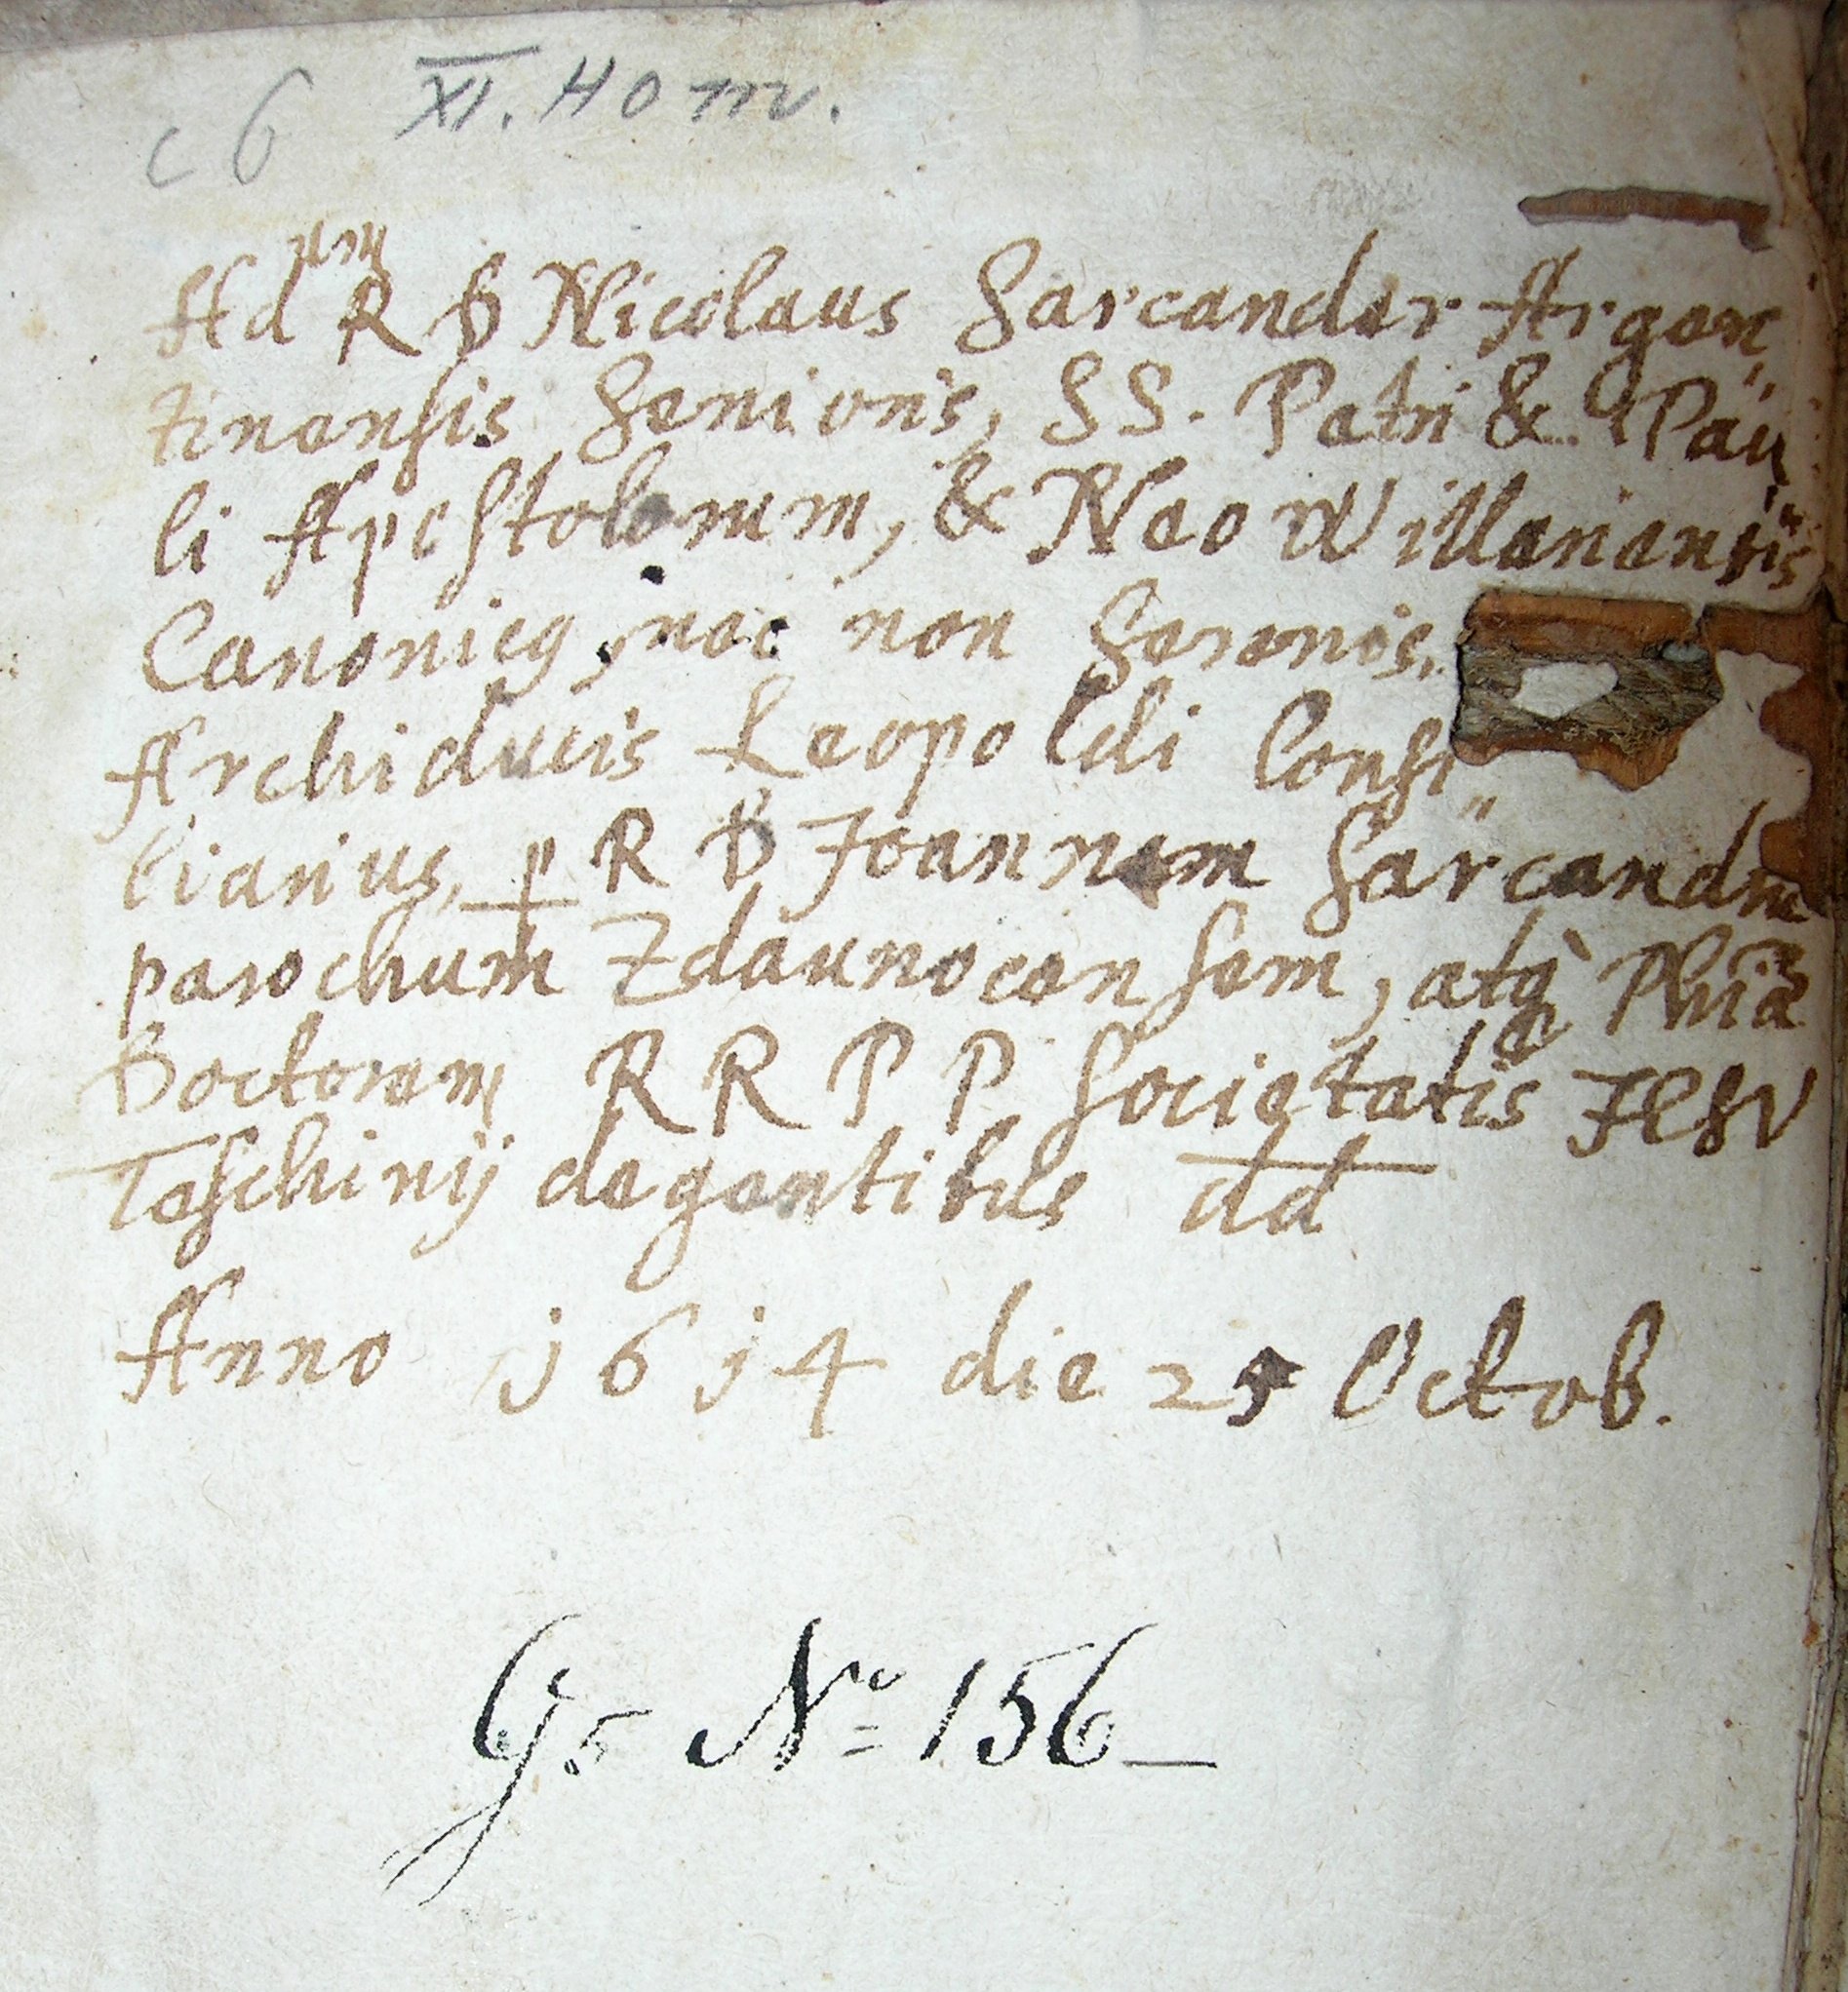 c 6 XI. Hom.
Ad R D Nicolaus Sarcander Argen„
tinensis Senioris, SS. Petri & Pau„
li Apostolorum, & Neo Willeriensis
Canonicq, nec non Serenis.
Archiducis Leopoldi Consi„
liarius, p R D Joannem Sarcandrū
parochum Zdaunocensem, atq Phiæ
Doctorem R R P P Societatis JESV
Teschinij degentibus dd
Anno j6j4 die 25 Octob.
G5 No 156